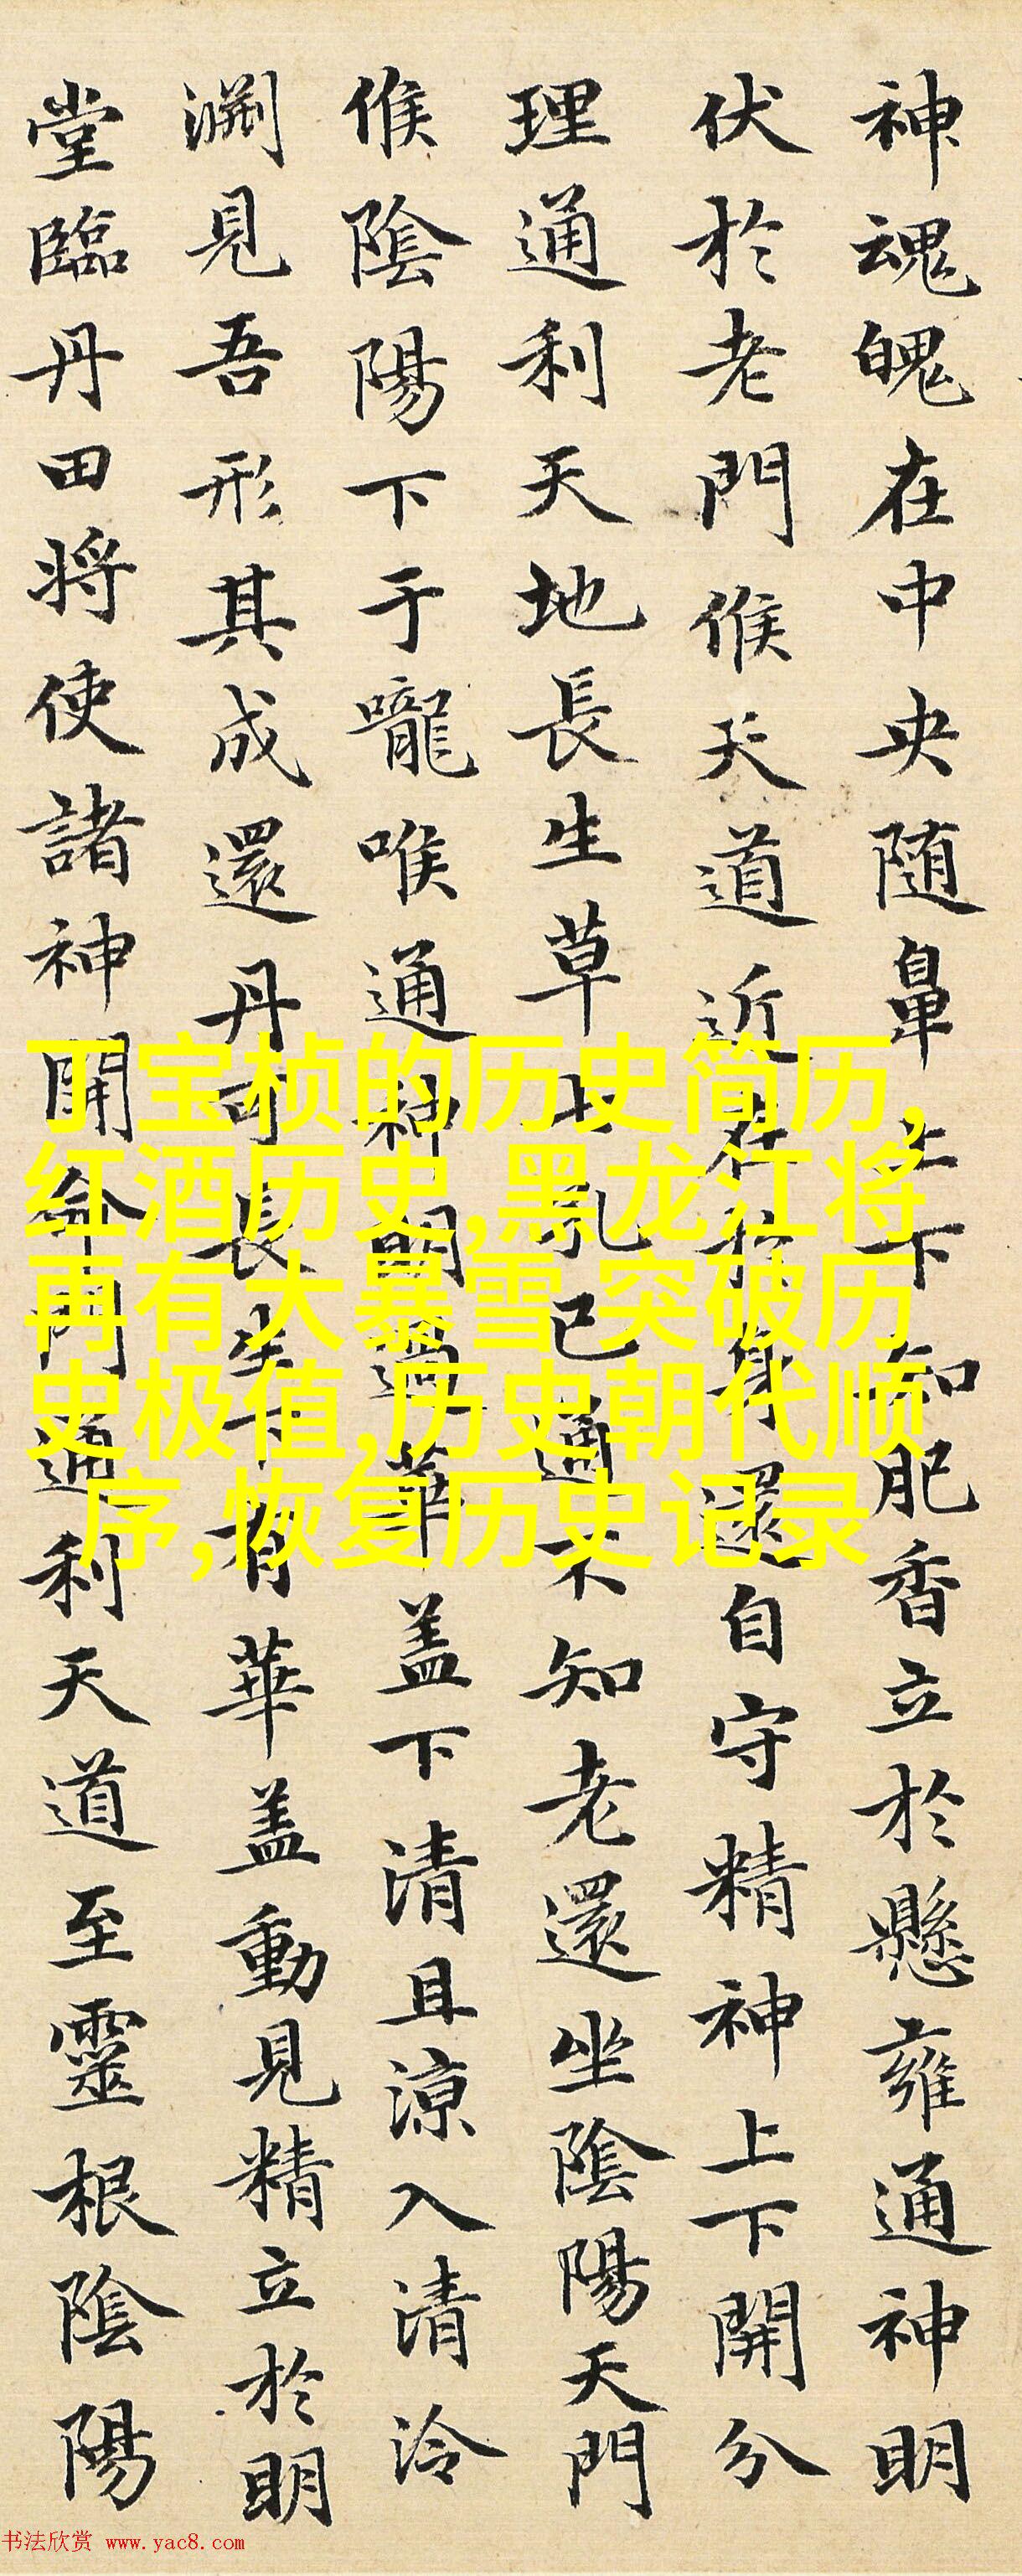 神魂魄在中央随鼻上下知肥香立於懸雍通神明
伏於老門候天道近在於身還自守精神上下開分
理通利天地長生草七孔已通不知老還坐陰陽天門
候陰陽下于嚨喉通神明過華蓋下清且涼入清泠
淵見吾形其成還丹可長生下有華蓋動見精立於明
堂臨丹田将使諸神開命門通利天道至靈根陰陽
丁宝桢的历史简历,
红酒历史,黑龙江将
再有大暴雪 突破历
史极值,历史朝代顺
序,恢复历史记录
书法欣赏 www.yac8.com